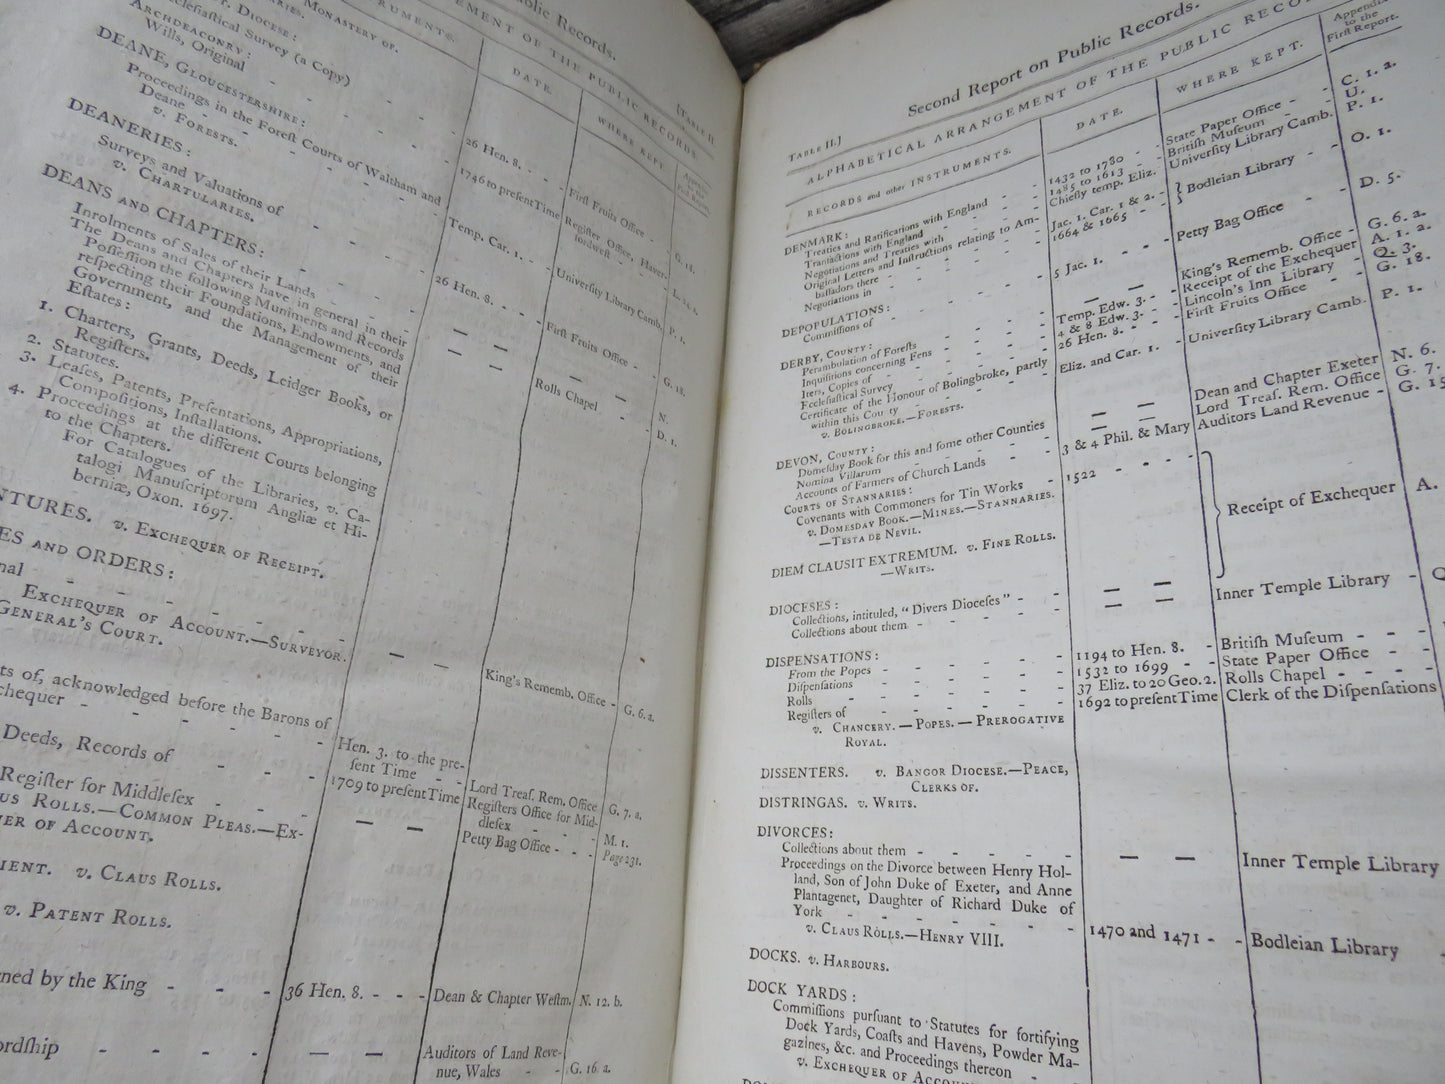 Public Records. [TABLE II.
ARRANGEMENT OF THE PUBLIC RECORDS.
INSTRUMENTS. DATE. WHERE KEPT. Appendix to the First Report.
MONASTERY OF.
DIOCESE:
Ecclesiaſtical Survey (a Copy) - - 26 Hen. 8. - - - Firſt Fruits Office - G. 18.
ARCHDEACONRY:
Wills, Original - - - - 1746 to preſent Time Regiſter Office, Haver-
fordweſt - - L. 24. b.
DEANE, GLOUCESTERSHIRE:
Proceedings in the Foreſt Courts of Waltham and
Deane - - - - Temp. Car. 1. - - Univerſity Library Camb. P. 1.
v. FORESTS.
DEANERIES:
Surveys and Valuations of - - - 26 Hen. 8. - - - Firſt Fruits Office - - G. 18.
v. CHARTULARIES.
DEANS AND CHAPTERS:
Inrolments of Sales of their Lands - - — — Rolls Chapel - - D. 1.
The Deans and Chapters have in general in their — — — N.
Poſſeſſion the following Muniments and Records
reſpecting their Foundations, Endowments, and
Government, and the Management of their
Eſtates:
1. Charters, Grants, Deeds, Leidger Books, or
Regiſters.
2. Statutes.
3. Leaſes, Patents, Preſentations, Appropriations,
Compoſitions, Inſtallations.
4. Proceedings at the different Courts belonging
to the Chapters.
For Catalogues of the Libraries, v. Ca-
talogi Manuſcriptorum Angliæ et Hi-
berniæ, Oxon. 1697.
NTURES. v. EXCHEQUER OF RECEIPT.
ES AND ORDERS:
nal - - - - - — — King's Rememb. Office - G. 6. a.
EXCHEQUER OF ACCOUNT.—SURVEYOR
GENERAL'S COURT.
ts of, acknowledged before the Barons of
chequer - - - - - Hen. 3. to the pre-
ſent Time - - Lord Treaſ. Rem. Office G. 7. a.
Deeds, Records of - - - 1709 to preſent Time Regiſters Office for Mid-
dleſex - - - M. 1.
Regiſter for Middleſex - - - — — Petty Bag Office - - - Page 231.
US ROLLS.—COMMON PLEAS.—EX-
ER OF ACCOUNT.
IENT. v. CLAUS ROLLS.
v. PATENT ROLLS.
ned by the King - - - 36 Hen. 8. - - - Dean & Chapter Weſtm. N. 12. b.
ordſhip - - - - — — Auditors of Land Reve-
nue, Wales - - G. 16. a.
Second Report on Public Records.
TABLE II.]
ALPHABETICAL ARRANGEMENT OF THE PUBLIC RECO
RECORDS and other INSTRUMENTS. DATE. WHERE KEPT. Appendix to the Firſt Report.
DENMARK:
Treaties and Ratifications with England - - 1432 to 1780 - - State Paper Office - - C. 1. a.
Tranſactions with England - - - 1485 to 1613 - - Britiſh Muſeum - - U.
Negotiations and Treaties with - - Chiefly temp. Eliz. Univerſity Library Camb. P. 1.
Original Letters and Inſtructions relating to Am-
baſſadors there - - Jac. 1. Car. 1 & 2. - Bodleian Library - - O. 1.
Negotiations in - - - 1664 & 1665 - -
DEPOPULATIONS:
Commiſſions of - - - 5 Jac. 1. - - - Petty Bag Office - D. 5.
DERBY, COUNTY:
Perambulation of Foreſts - - — — King's Rememb. Office - G. 6. a.
Inquiſitions concerning Fens - - Temp. Edw. 3. - - Receipt of the Exchequer A. 1. a.
Iters, Copies of - - - 4 & 8 Edw. 3. - - Lincoln's Inn Library - Q. 3.
Eccleſiaſtical Survey - - - 26 Hen. 8. - - - Firſt Fruits Office - - G. 18.
Certificate of the Honour of Bolingbroke, partly
within this County - - Eliz. and Car. 1. - Univerſity Library Camb. P. 1.
v. BOLINGBROKE.—FORESTS.
DEVON, COUNTY:
Domeſday Book for this and ſome other Counties — — Dean and Chapter Exeter N. 6.
Nomina Villarum - - - — Lord Treaſ. Rem. Office G. 7.
Accounts of Farmers of Church Lands - - 3 & 4 Phil. & Mary Auditors Land Revenue - G. 15
COURTS OF STANNARIES:
Covenants with Commoners for Tin Works - 1522 - - - - Receipt of Exchequer A.
v. DOMESDAY BOOK.—MINES.—STANNARIES.
—TESTA DE NEVIL.
DIEM CLAUSIT EXTREMUM. v. FINE ROLLS.
—WRITS.
DIOCESES:
Collections, intituled, "Divers Dioceſes" - - — — Inner Temple Library -
Collections about them - - - — —
DISPENSATIONS:
From the Popes - - - - 1194 to Hen. 8. - Britiſh Muſeum - - -
Diſpenſations - - - - 1532 to 1699 - - State Paper Office - -
Rolls - - - - 37 Eliz. to 20 Geo. 2. Rolls Chapel - - -
Regiſters of - - - - 1692 to preſent Time Clerk of the Diſpenſations
v. CHANCERY.—POPES.—PREROGATIVE
ROYAL.
DISSENTERS. v. BANGOR DIOCESE.—PEACE,
CLERKS OF.
DISTRINGAS. v. WRITS.
DIVORCES:
Collections about them - - - - — — Inner Temple Library
Proceedings on the Divorce between Henry Hol-
land, Son of John Duke of Exeter, and Anne
Plantagenet, Daughter of Richard Duke of
York - - - - - - 1470 and 1471 - - Bodleian Library
v. CLAUS ROLLS.—HENRY VIII.
DOCKS. v. HARBOURS.
DOCK YARDS:
Commiſſions purſuant to Statutes for fortifying
Dock Yards, Coaſts and Havens, Powder Ma-
gazines, &c. and Proceedings thereon -
v. EXCHEQUER OF ACCO